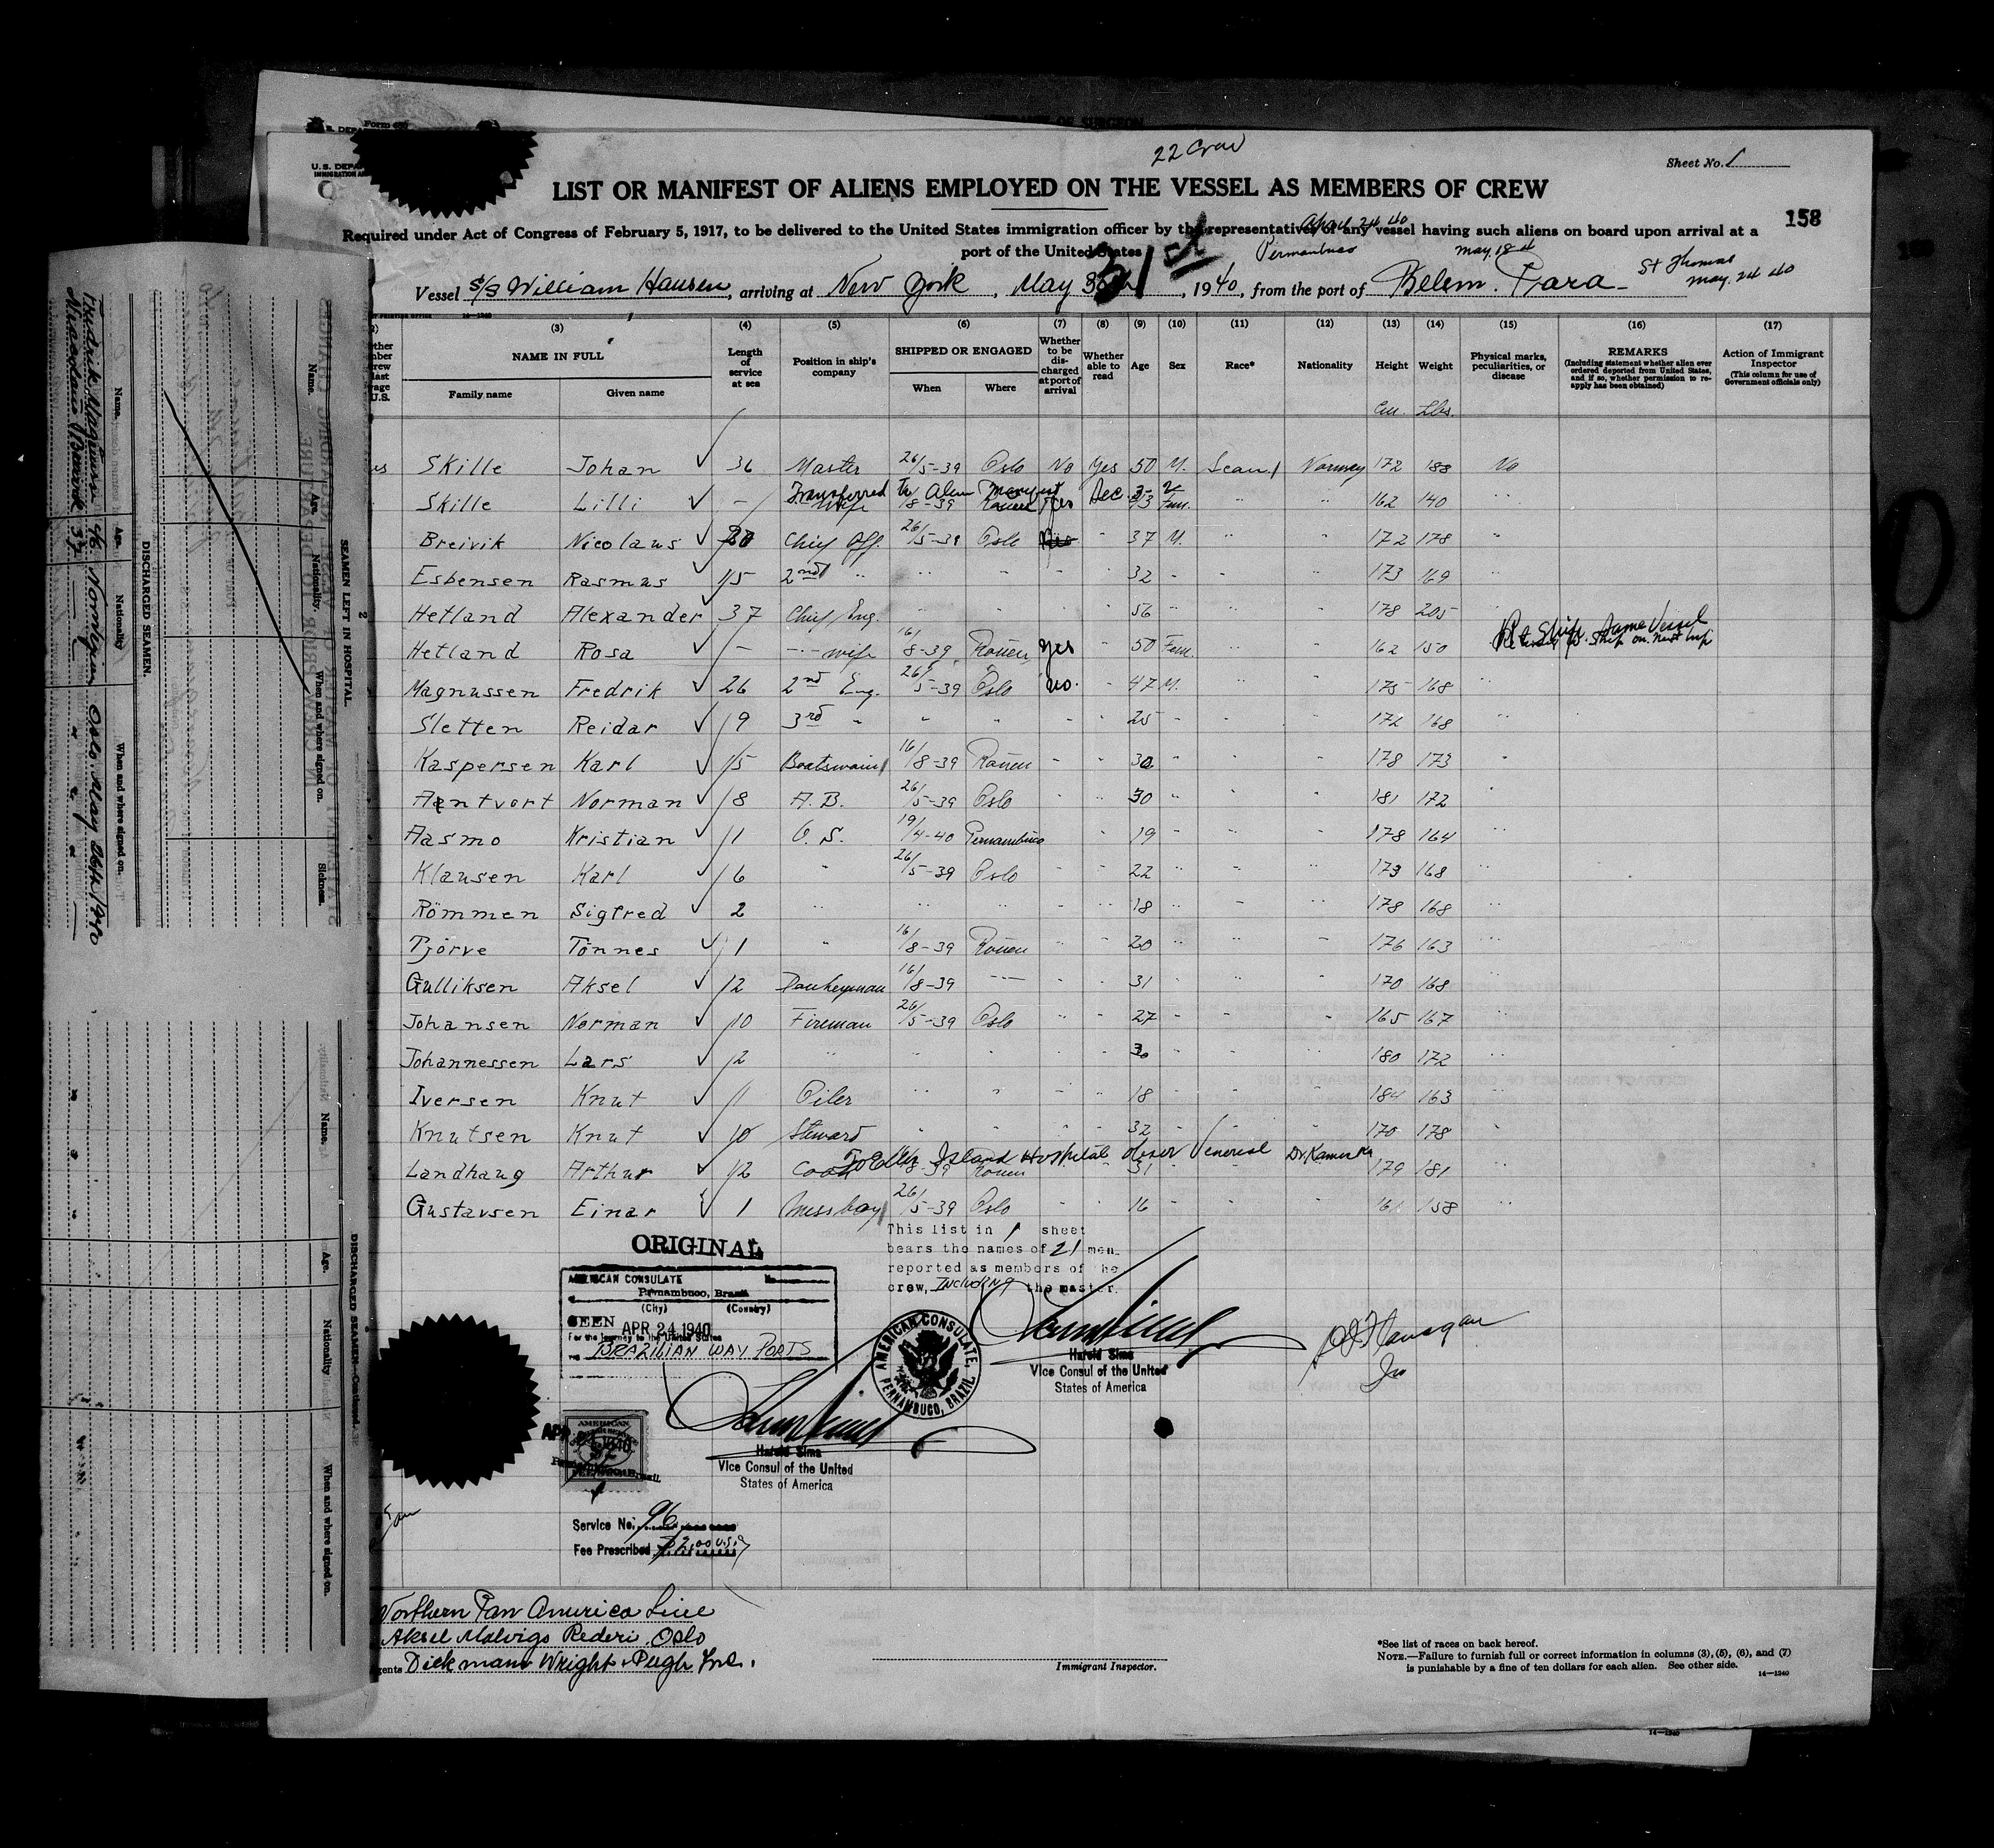 22 Crew
Sheet No. 1
LIST OR MANIFEST OF ALIENS EMPLOYED ON THE VESSEL AS MEMBERS OF CREW
158
Required under Act of Congress of February 5, 1917, to be delivered to the United States immigration officer by the representative of any vessel having such aliens on board upon arrival at a
port of the United States
April 24 40
Pernambuco
May 18th
St Thomas
May 24 40
Vessel S/S William Hansen, arriving at New York, May 31st, 1940, from the port of Belem. Para
(3) (4) (5) (6) (7) (8) (9) (10) (11) (12) (13) (14) (15) (16) (17)
NAME IN FULL
Family name Given name
Length of service at sea
Position in ship's company
SHIPPED OR ENGAGED
When Where
Whether to be discharged at port of arrival
Whether able to read
Age Sex Race* Nationality Height Weight
Physical marks, peculiarities, or disease
REMARKS
(Including statement whether alien ever ordered deported from United States, and if so, whether permission to reapply has been obtained)
Action of Immigrant Inspector
(This column for use of Government officials only)
Cm. Lbs.
Skille Johan 36 Master 26/5-39 Oslo No Yes 50 M. Scan. Norway 172 188 No
Transferred to Alien Manifest
Skille Lilli - wife 8-39 Rouen Yes Fem. " " 162 140 "
Breivik Nicolaus Chief Off. 26/5-39 Oslo " 37 M. " " 172 178 "
Esbensen Rasmus 15 2nd " " " " " 32 " " " 173 169 "
Hetland Alexander 37 Chief Eng. " " " " 56 " " " 178 205 "
Ret Ship. Same Vessel
Hetland Rosa - wife 16/8-39 Rouen Yes " 50 Fem. " " 162 150
Magnussen Fredrik 26 2nd Eng. 26/5-39 Oslo No. " 47 M. " " 175 168 "
Sletten Reidar 9 3rd " " " " " 25 " " " 172 168 "
Kaspersen Karl 15 Boatswain 16/8-39 Rouen " " 30 " " " 178 173 "
Norman 8 A.B. 26/5-39 Oslo " " 30 " " " 181 172 "
Aasmo Kristian 1 O.S. 19/4-40 Pernambuco " 19 " " " 178 164 "
Klausen Karl 6 " 26/5-39 Oslo " " 22 " " " 173 168 "
Römmen Sigfred 2 " " " " " 18 " " " 178 168 "
Tjörve Tönnes 1 " 16/8-39 Rouen " " 20 " " " 176 163 "
Gulliksen Aksel 12 Donkeyman 16/8-39 " " " 31 " " " 170 168 "
Johansen Norman 10 Fireman 26/5-39 Oslo " " 27 " " " 165 167 "
Johannessen Lars 2 " " " " " 30 " " " 180 172 "
Iversen Knut 1 Oiler " " " " 18 " " " 184 163 "
Knutsen Knut 10 Steward " " " " 32 " " " 170 178 "
To Ellis Island Hospital observ Venereal
Landhaug Arthur 12 Cook 8-39 Rouen " " 31 179 181 "
Gustavsen Einar 1 Messboy 26/5-39 Oslo " " 16 " " " 161 158 "
This list in 1 sheet
bears the names of 21 men
reported as members of the
crew, INCLUDING the master.
ORIGINAL
AMERICAN CONSULATE
Pernambuco, Brazil
(City) (Country)
SEEN APR 24 1940
For the journey to the United States
BRAZILIAN WAY PORTS
AMERICAN CONSULATE, PERNAMBUCO, BRAZIL
Harold Sims
Vice Consul of the United
States of America
Harold Sims
Vice Consul of the United
States of America
AMERICAN
Service No. 96
Fee Prescribed
Northern Pan America Line
Rederi, Oslo
Dickmann Wright & Pugh Inc.
Immigrant Inspector.
*See list of races on back hereof.
NOTE.—Failure to furnish full or correct information in columns (3), (5), (6), and (7)
is punishable by a fine of ten dollars for each alien. See other side.
14—1240
SEAMEN LEFT IN HOSPITAL
Name. Age. Nationality. When and where signed on. Sickness.
DISCHARGED SEAMEN.
Name. Age. Nationality When and where signed on.
Fredrik Magnussen 46 Norwegian Oslo May 26th 1940
Nicolaus Breivik 37
DISCHARGED SEAMEN—Continued.
Name. Age. Nationality When and where signed on.